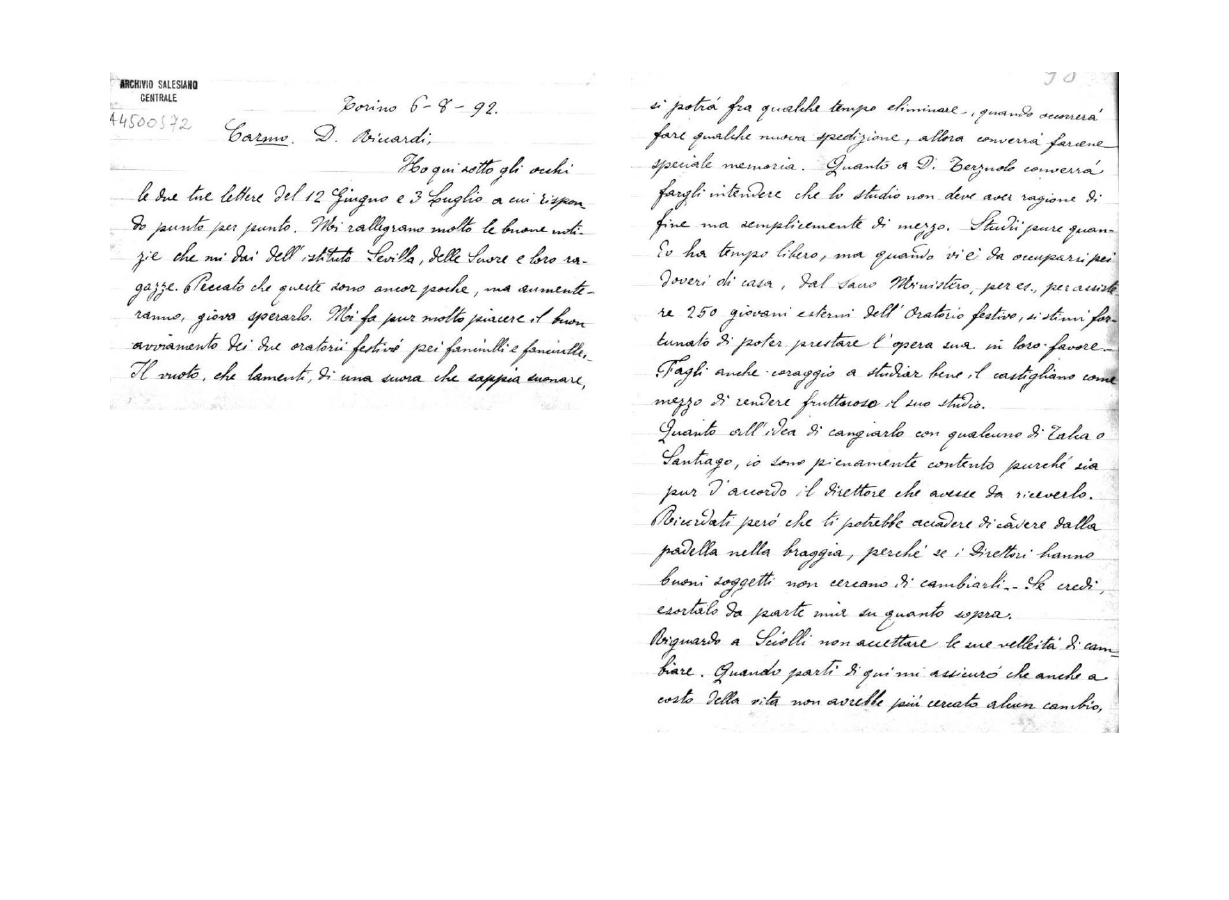 ARCHIVIO SALESIANO
CENTRALE
A4500572
Torino 6-8-92.
Carmo. D. Riccardi,
Ho qui sotto gli occhi
le due tue lettere del 12 Giugno e 3 Luglio a cui rispon-
do punto per punto. Mi rallegrano molto le buone noti-
zie che mi dai dell'istituto Sevilla, delle Suore e loro ra-
gazze. Peccato che queste sono ancor poche, ma aumente-
ranno, giova sperarlo. Mi fa pur molto piacere il buon
avviamento dei due oratorii festivi pei fanciulli e fanciulle.
Il vuoto, che lamenti, di una suora che sappia suonare,
90
si potrá fra qualche tempo eliminare, quando occorrerá
fare qualche nuova spedizione, allora converrá farcene
speciale memoria. Quanto a D. Bergnolo converrá
fargli intendere che lo studio non deve aver ragione di
fine ma semplicemente di mezzo. Studi pure quan-
to ha tempo libero, ma quando vi é da occuparsi pei
doveri di casa, dal sacro Ministero, per es., per assiste
re 250 giovani esterni dell'Oratorio festivo, si stimi for-
tunato di poter prestare l'opera sua in loro favore.
Fagli anche coraggio a studiar bene il castigliano come
mezzo di rendere fruttuoso il suo studio.
Quanto all'idea di cangiarlo con qualcuno di Talca o
Santiago, io sono pienamente contento purché sia
pur d'accordo il direttore che avesse da riceverlo.
Ricordati peró che ti potrebbe accadere di cadere dalla
padella nella braggia, perché se i Direttori hanno
buoni soggetti non cercano di cambiarli. Se credi,
esortalo da parte mia su quanto sopra.
Riguardo a Sciolli non accettare le sue velleitá di cam-
biare. Quando partí di qui mi assicuró che anche a
costo della vita non avrebbe piú cercato alcun cambio,